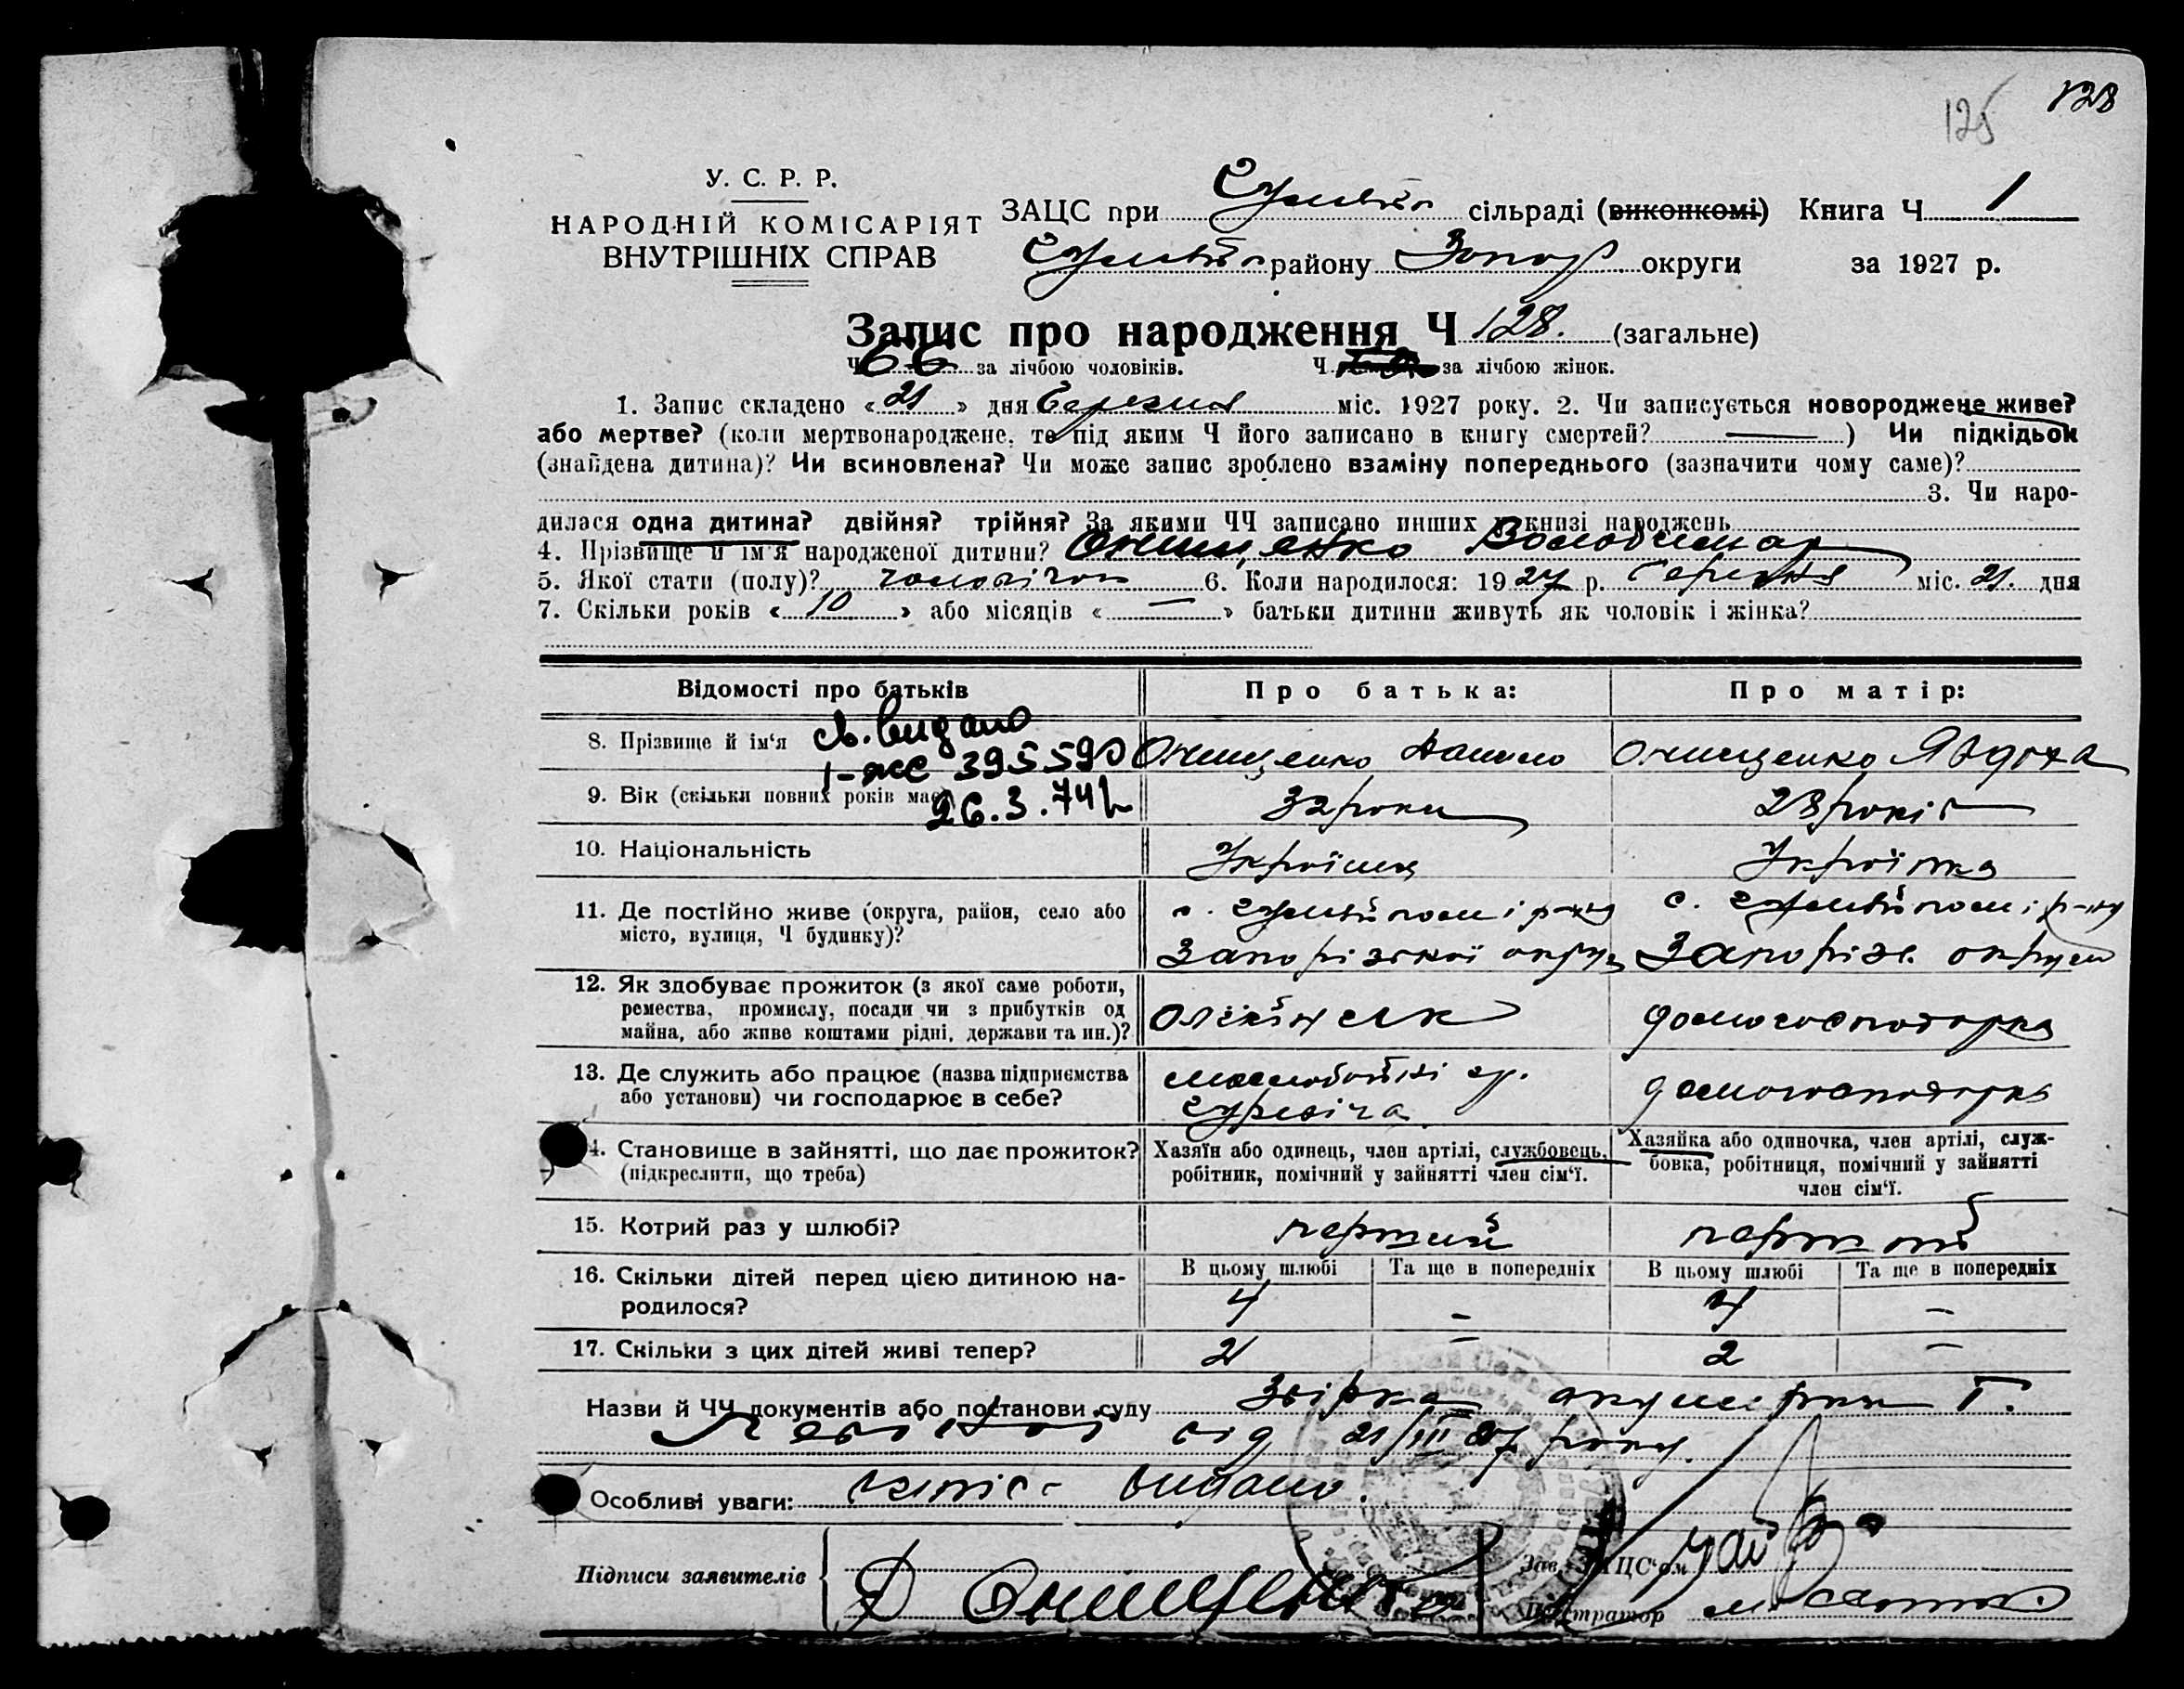 128
125
У. С. Р. Р.
НАРОДНІЙ КОМІСАРІЯТ
ВНУТРІШНІХ СПРАВ
ЗАЦС при сільраді (виконкомі) Книга Ч 1
району Запор округи за 1927 р.
Запис про народження Ч 128. (загальне)
Ч 66 за лічбою чоловіків. Ч за лічбою жінок.
1. Запис складено « 21 » дня березня міс. 1927 року. 2. Чи записується новороджене живе?
або мертве? (коли мертвонароджене, то під яким Ч його записано в книгу смертей? —) Чи підкідьок
(знайдена дитина)? Чи всиновлена? Чи може запис зроблено взаміну попереднього (зазначити чому саме)?
3. Чи наро-
дилася одна дитина? двійня? трійня? За якими ЧЧ записано инших в книзі народжень
4. Прізвище й ім'я народженої дитини? Онищенко Володимар
5. Якої стати (полу)? чоловічої 6. Коли народилося: 1927 р. березня міс. 21. дня
7. Скільки років « 10 » або місяців « — » батьки дитини живуть як чоловік і жінка?
Відомості про батьків Про батька: Про матір:
8. Прізвище й ім'я Онищенко Данило Онищенко Явдоха
св. видано
1-же 395590
26.3.74
9. Вік (скільки повних років має) 32 роки 28 років
10. Національність Українець Українка
11. Де постійно живе (округа, район, село або
місто, вулиця, Ч будинку)?
Запорізької округи Запоріз. округи
12. Як здобуває прожиток (з якої саме роботи,
ремества, промислу, посади чи з прибутків од
майна, або живе коштами рідні, держави та ин.)?
олійник домогосподарка
13. Де служить або працює (назва підприємства
або установи) чи господарює в себе?
маслобойні гр. домогосподарка
14. Становище в зайнятті, що дає прожиток?
(підкреслити, що треба)
Хазяїн або одинець, член артілі, службовець,
робітник, помічний у зайнятті член сім'ї.
Хазяйка або одиночка, член артілі, служ-
бовка, робітниця, помічний у зайнятті
член сім'ї.
15. Котрий раз у шлюбі? перший перший
16. Скільки дітей перед цією дитиною на-
родилося?
В цьому шлюбі Та ще в попередніх В цьому шлюбі Та ще в попередніх
4 — 4 —
17. Скільки з цих дітей живі тепер? 2 — 2 —
Назви й ЧЧ документів або постанови суду акушерки Г.
від 21/III 27 року.
Особливі уваги: видано.
Підписи заявителів Д Онищенко
Зав. ЗАЦС'ом
Реєстратор